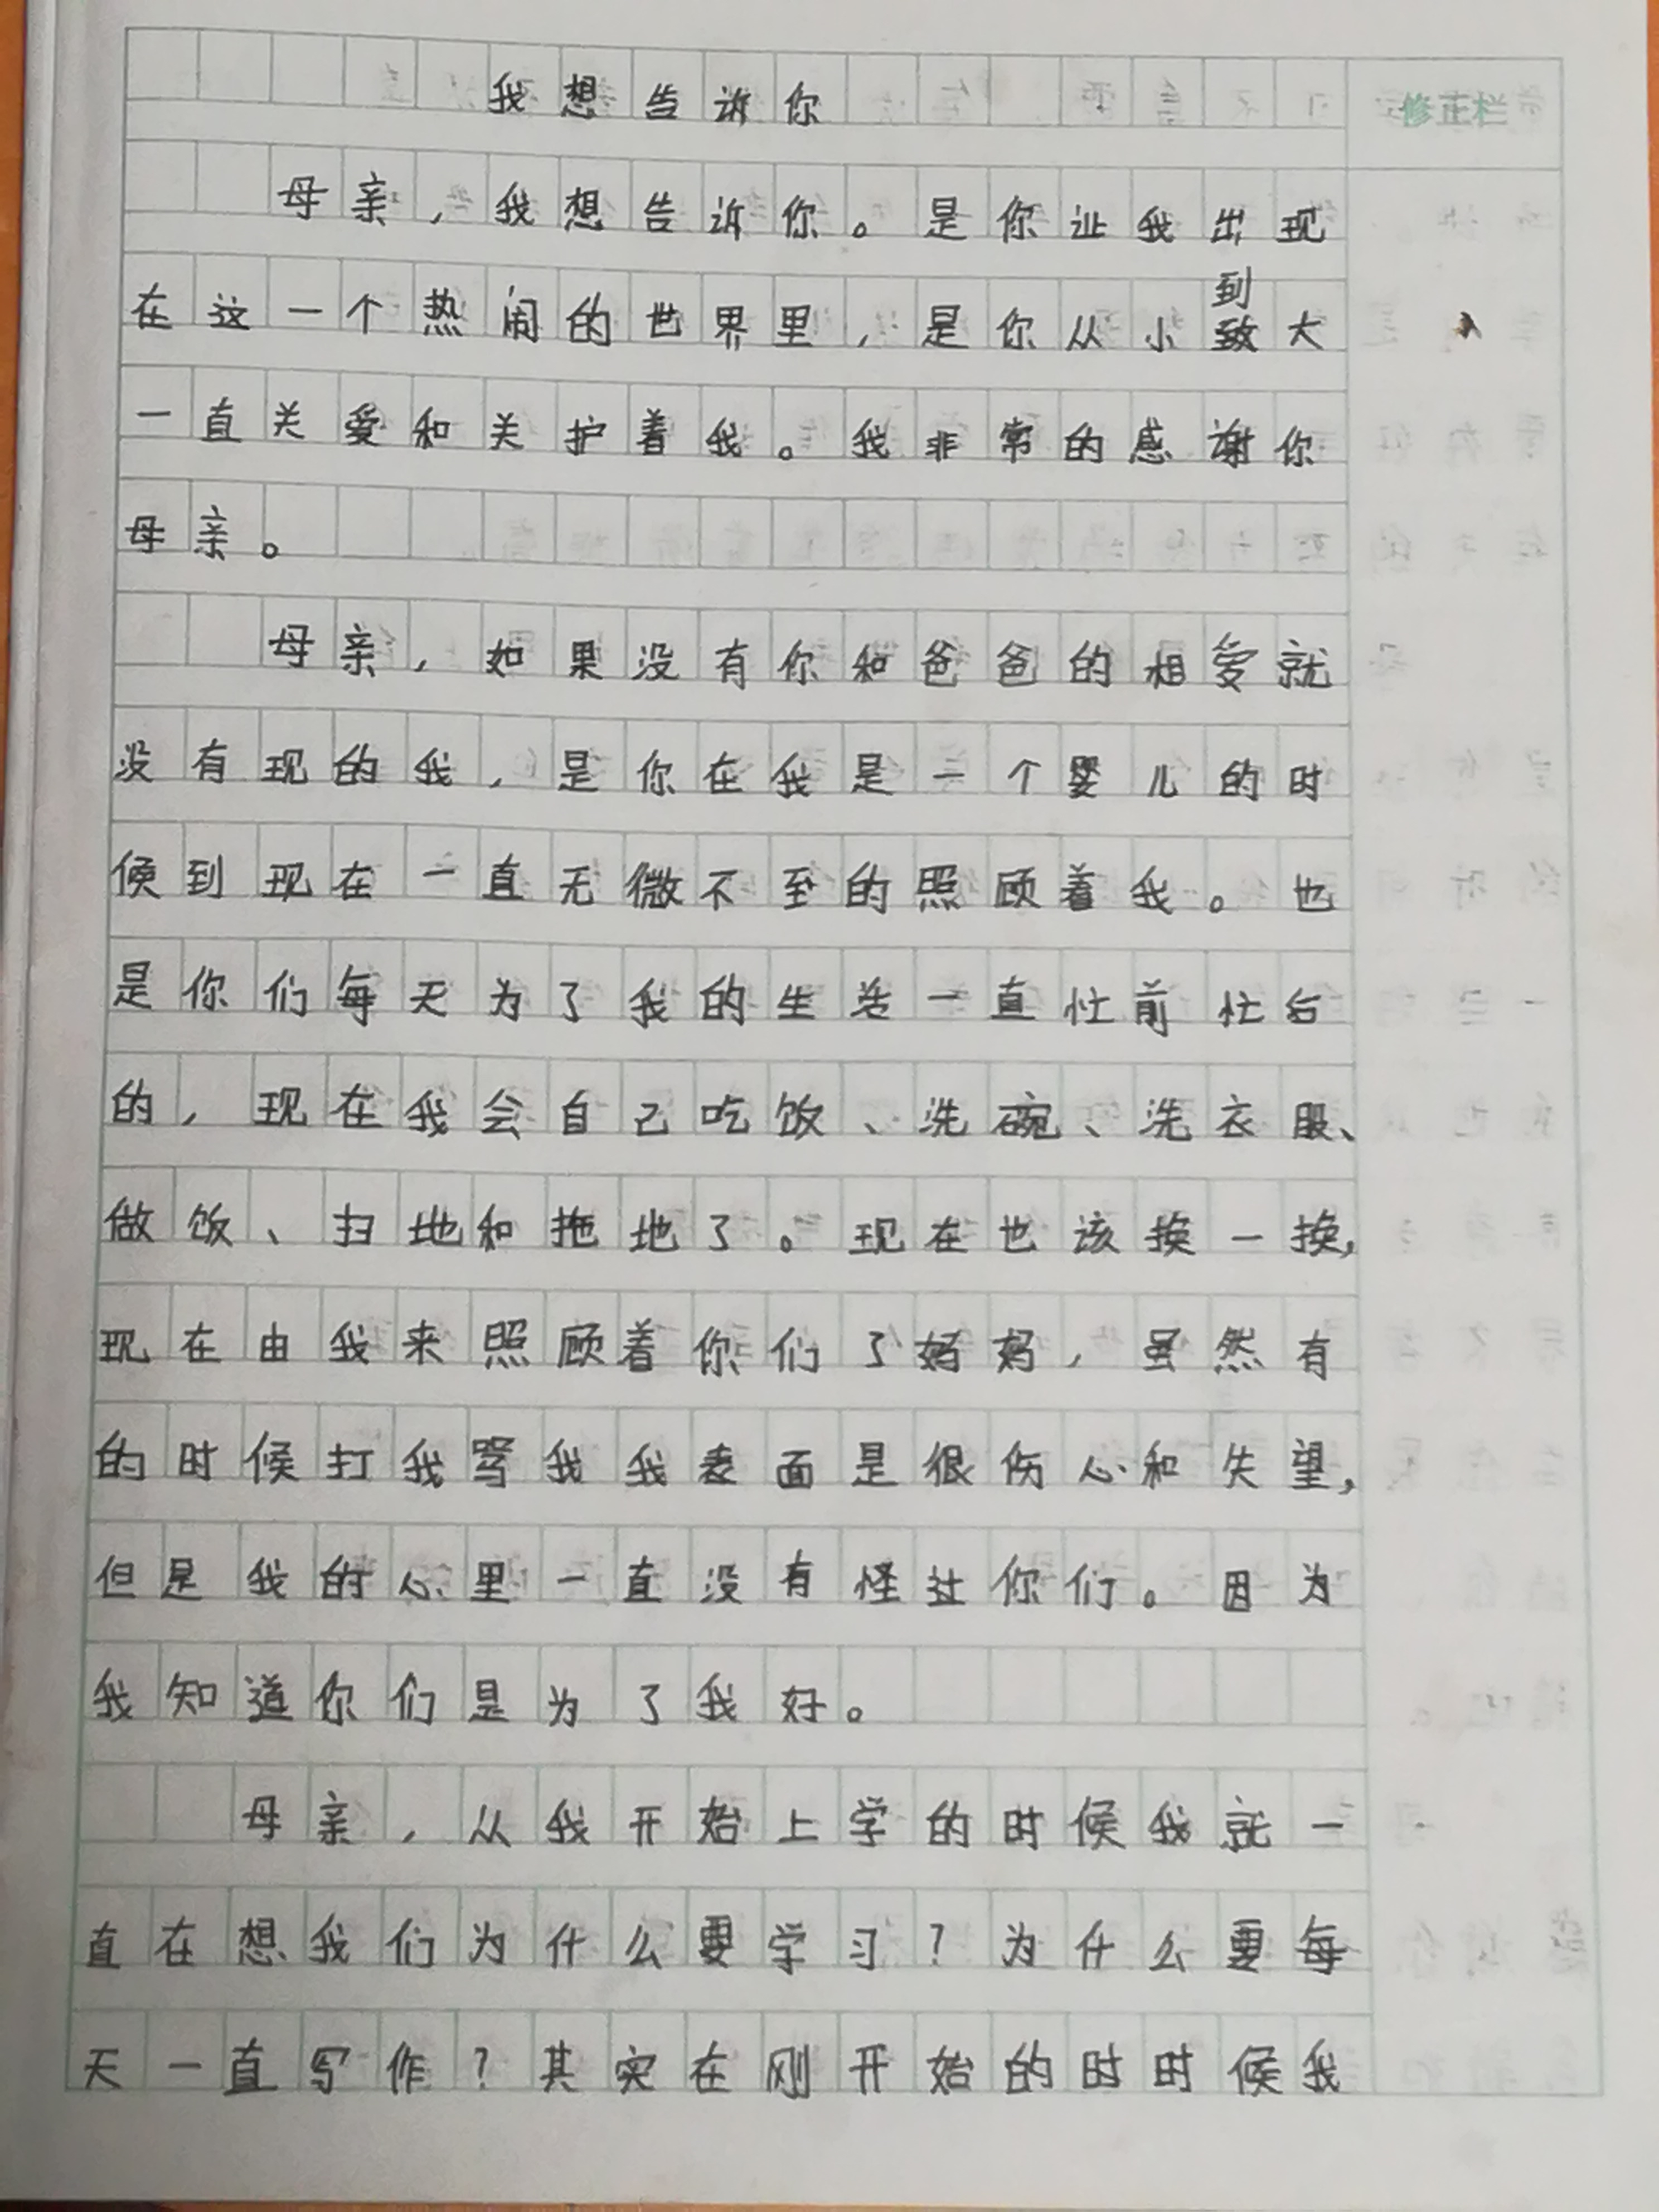 我想告诉你
修正栏
母亲，我想告诉你。是你让我出现
在这一个热闹的世界里，是你从小到致大
一直关爱和关护着我。我非常的感谢你
母亲。
母亲，如果没有你和爸爸的相爱就
没有现的我，是你在我是一个婴儿的时
候到现在一直无微不至的照顾着我。也
是你们每天为了我的生活一直忙前忙后
的，现在我会自己吃饭、洗碗、洗衣服、
做饭、扫地和拖地了。现在也该换一换，
现在由我来照顾着你们了妈妈，虽然有
的时候打我骂我我表面是很伤心和失望，
但是我的心里一直没有怪过你们。因为
我知道你们是为了我好。
母亲，从我开始上学的时候我就一
直在想我们为什么要学习？为什么要每
天一直写作？其实在刚开始的时时候我